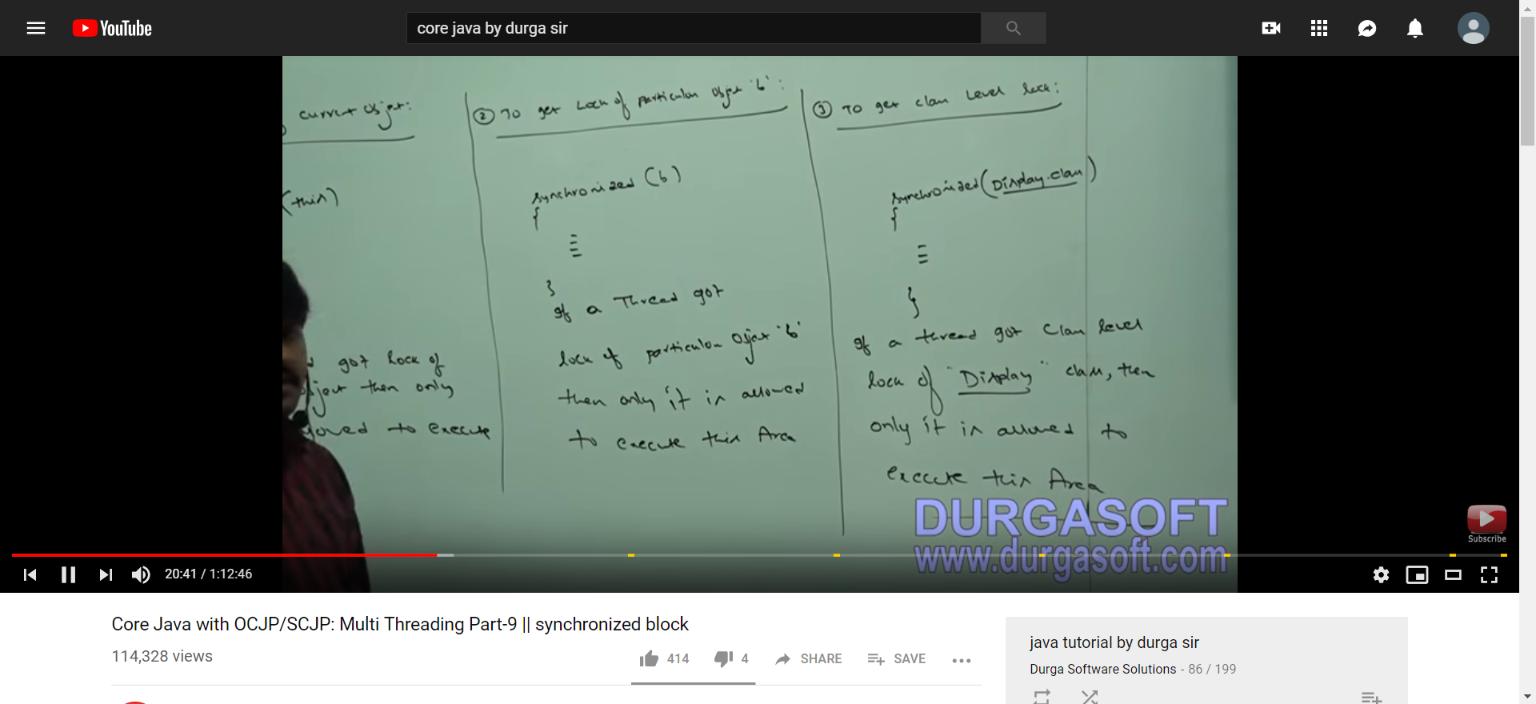 YouTube
core java by durga sir
current object:
(this)
got lock of
object then only
allowed to execute
② To get Lock of particular object 'b':
synchronized (b)
{
}
If a Thread got
lock of particular object 'b'
then only it is allowed
to execute this Area
③ To get class Level lock:
synchronized(Display.class)
{
}
If a thread got class level
lock of "Display" class, then
only it is allowed to
execute this Area
DURGASOFT
www.durgasoft.com
Subscribe
20:41 / 1:12:46
Core Java with OCJP/SCJP: Multi Threading Part-9 || synchronized block
114,328 views
414
4
SHARE
SAVE
java tutorial by durga sir
Durga Software Solutions - 86 / 199